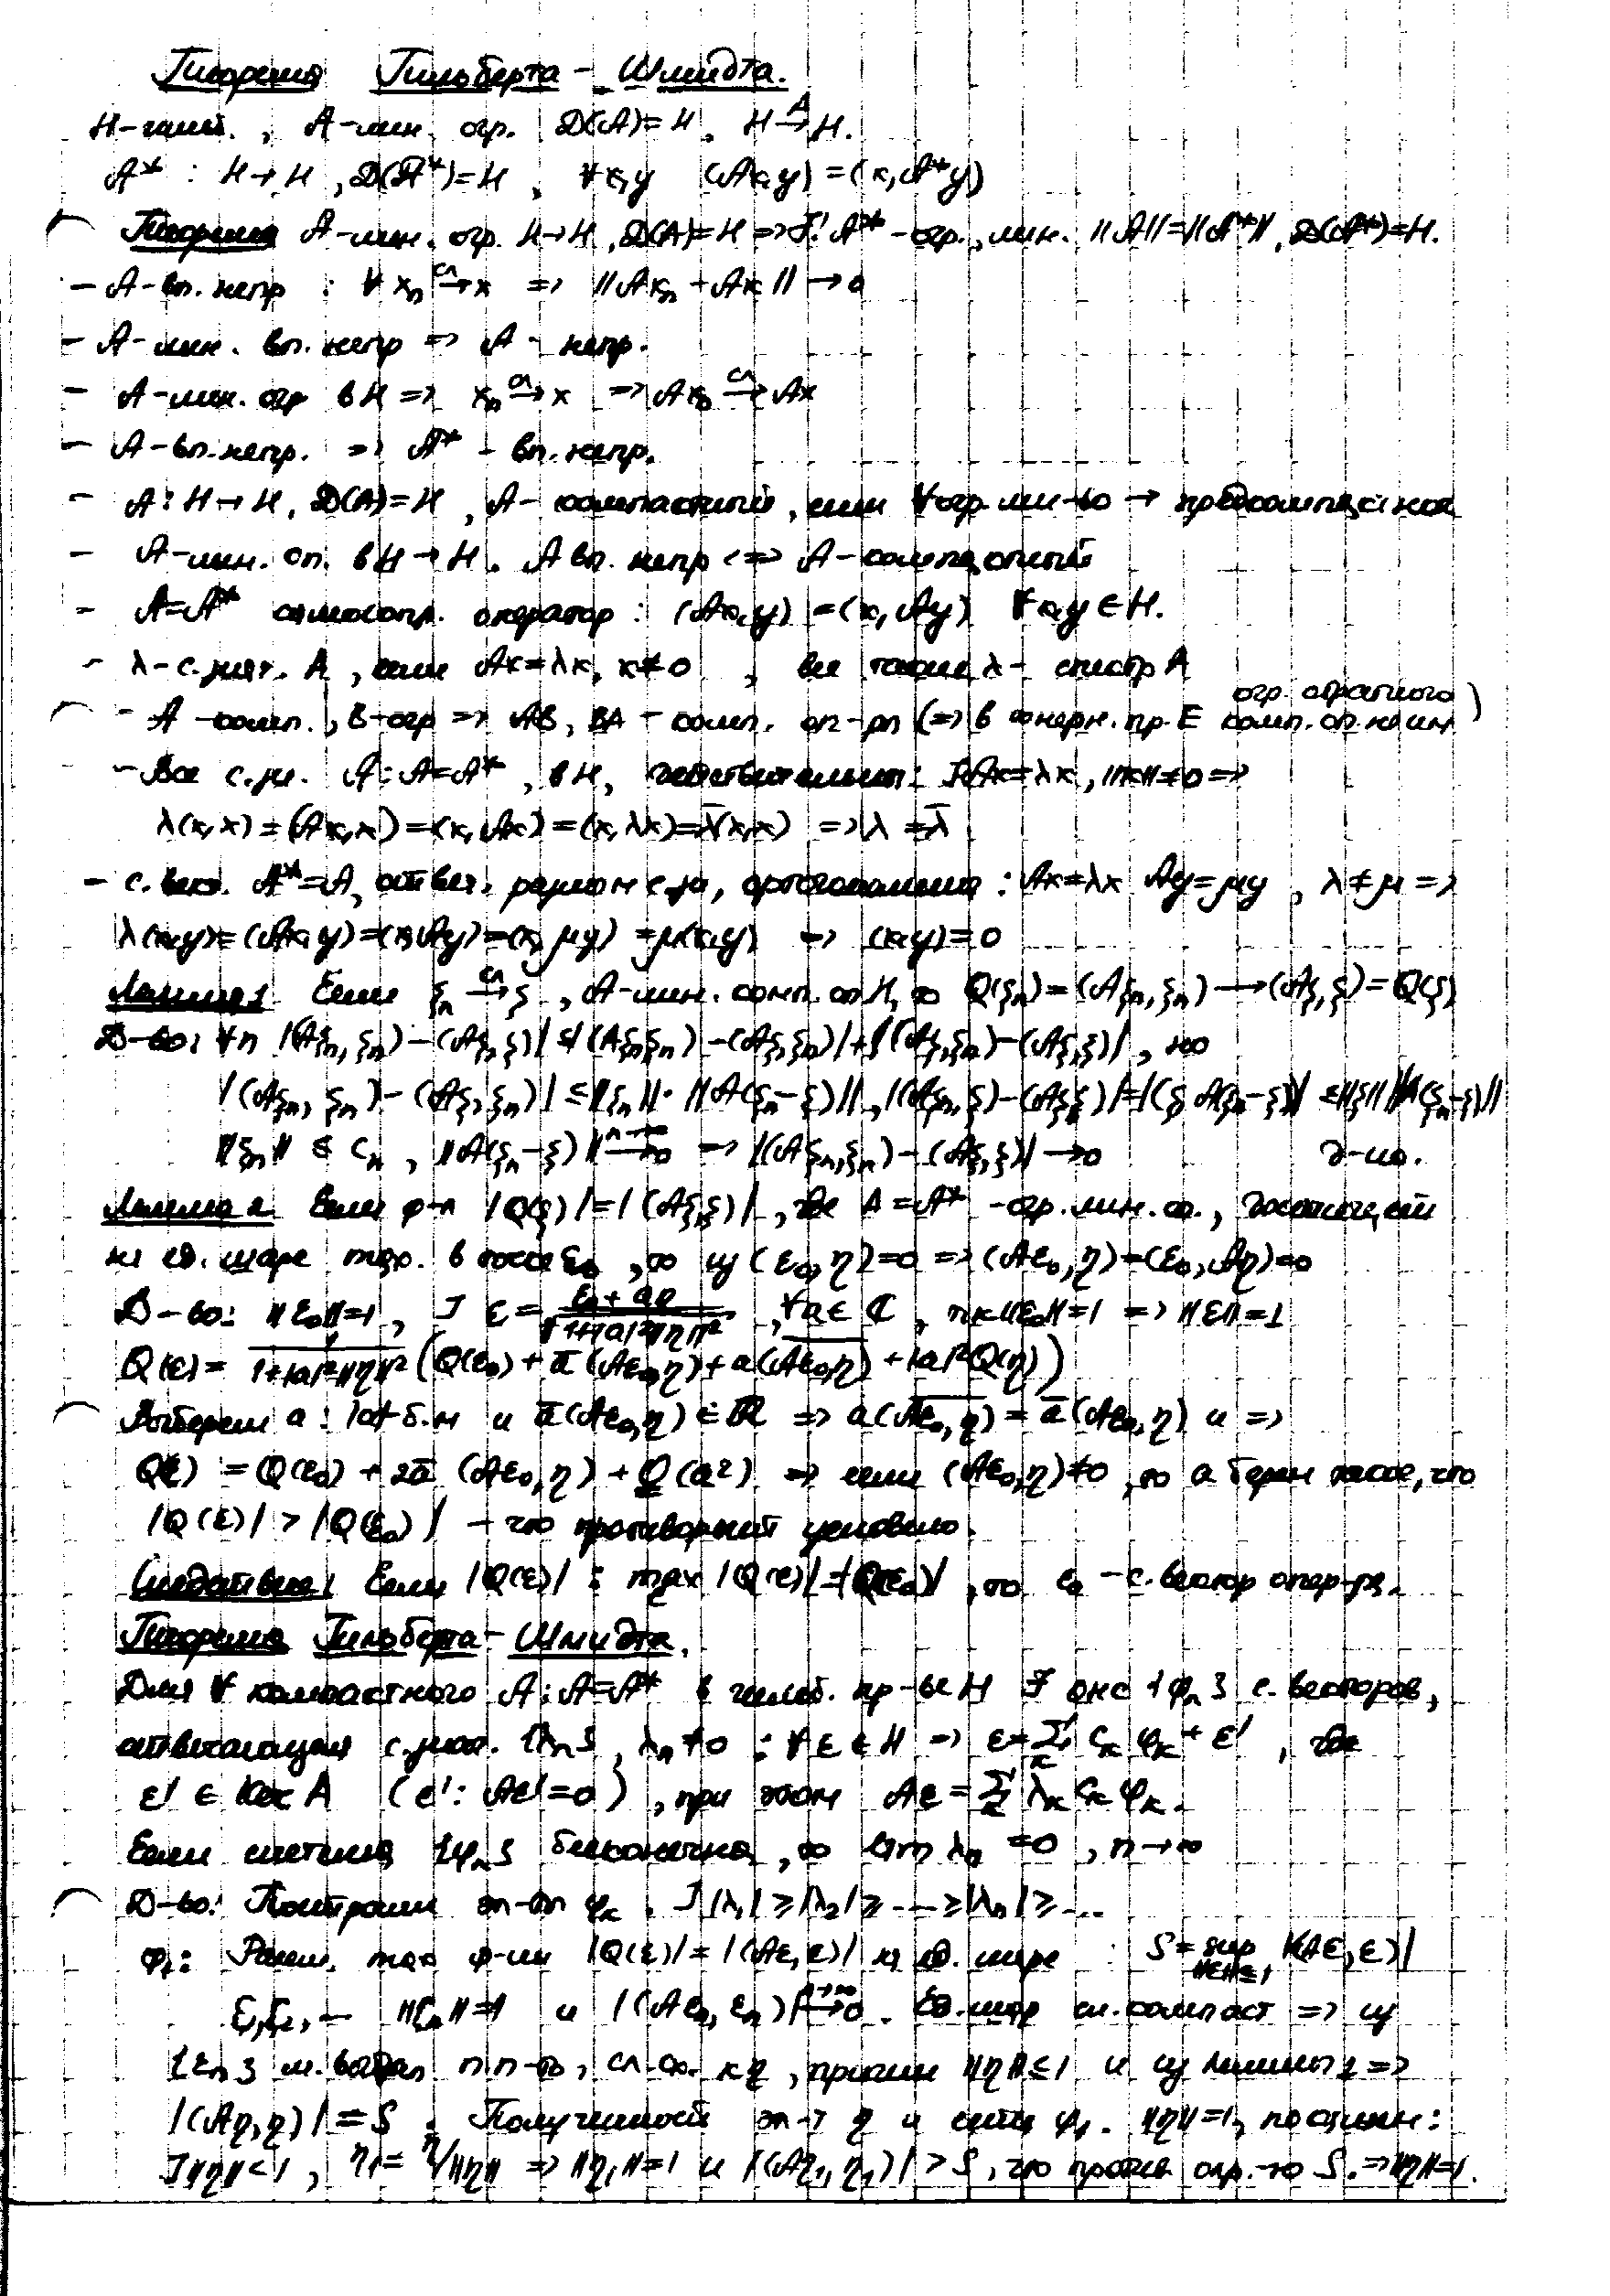 Теорема Гильберта - Шмидта.
H-гильб., A-лин. огр. D(A)=H, H →^A H.
A* : H→H, D(A*)=H, ∀x,y (Ax,y)=(x,A*y)
Теорема A-лин. огр. H→H, D(A)=H => ∃! A* -огр., лин. ||A||=||A*||, D(A*)=H.
- A-вп. непр : ∀ x_n →^сл x => ||Ax_n + Ax|| → 0
- A-лин. вп. непр => A - непр.
- A-лин. огр в H => x_n →^сл x => Ax_n →^сл Ax
- A-вп. непр. => A* - вп. непр.
- A: H→H, D(A)=H, A-компактный, если ∀ огр. мн-во → предкомпактное
- A-лин. оп. в H→H. A вп. непр <=> A-компактный
- A=A* самосопр. оператор : (Ax,y)=(x,Ay) ∀x,y∈H.
- λ-с. знач. A, если Ax=λx, x≠0, все такие λ- спектр A
- A -комп., B-огр => AB, BA - комп. оп-ры (=> в ∞мерн. пр. E комп. оп. не им. огр. обратного)
- Все с.зн. A: A=A*, в H, действительны: ] Ax=λx, ||x||≠0 =>
λ(x,x)=(Ax,x)=(x,Ax)=(x,λx)=λ̄(x,x) => λ=λ̄
- с. вект. A*=A, отвеч. разным с.зн., ортогональны : Ax=λx Ay=μy, λ≠μ =>
λ(x,y)=(Ax,y)=(x,Ay)=(x,μy)=μ(x,y) => (x,y)=0
Лемма 1 Если ξ_n →^сл ξ, A-лин. комп. оп H, то Q(ξ_n)=(Aξ_n,ξ_n)→(Aξ,ξ)=Q(ξ)
Д-во: ∀n |(Aξ_n,ξ_n)-(Aξ,ξ)| ≤ |(Aξ_n,ξ_n)-(Aξ,ξ_n)|+|(Aξ,ξ_n)-(Aξ,ξ)|, но
|(Aξ_n,ξ_n)-(Aξ,ξ_n)| ≤ ||ξ_n||·||A(ξ_n-ξ)||, |(Aξ_n,ξ)-(Aξ,ξ)|=|(ξ,A(ξ_n-ξ))| ≤ ||ξ|| ||A(ξ_n-ξ)||
||ξ_n|| ≤ C_n, ||A(ξ_n-ξ)|| →^{n→∞} 0 => |(Aξ_n,ξ_n)-(Aξ,ξ)| → 0 д-но.
Лемма 2 Если ф-л |Q(ξ)|=|(Aξ,ξ)|, где A=A* -огр. лин. оп., достигает
на ед. шаре max. в точке ε₀, то из (ε₀,η)=0 => (Aε₀,η)=(ε₀,Aη)=0
Д-во: ||ε₀||=1, ] ε = (ε₀+aη)/√(1+|a|²||η||²), ∀a∈ℂ, т.к. ||ε₀||=1 => ||ε||=1
Q(ε) = 1/(1+|a|²||η||²) (Q(ε₀) + ā(Aε₀,η) + a\overline{(Aε₀,η)} + |a|²Q(η))
Выберем a : |a| б.м и ā(Aε₀,η)∈ℝ => a\overline{(Aε₀,η)} = ā(Aε₀,η) и =>
Q(ε) = Q(ε₀) + 2ā (Aε₀,η) + O(a²) => если (Aε₀,η)≠0, то a берем такое, что
|Q(ε)| > |Q(ε₀)| - что противоречит условию.
Следствие! Если |Q(ε)| : max |Q(ε)|=|Q(ε₀)|, то ε₀ -с. вектор опер-ра.
Теорема Гильберта - Шмидта.
Для ∀ компактного A: A=A* в гильб. пр-ве H ∃ онс {φ_n} с. векторов,
отвечающая с.знач. {λ_n}, λ_n≠0 : ∀ε∈H => ε=∑_k c_k φ_k + ε', где
ε' ∈ Ker A (ε': Aε'=0), при этом Aε=∑_k λ_k c_k φ_k.
Если система {φ_n} бесконечна, то lim λ_n = 0, n→∞
Д-во: Построим эл-ты φ_k. ] |λ₁| ≥ |λ₂| ≥ ... ≥ |λ_n| ≥ ...
φ₁: Рассм. max ф-ии |Q(ε)|=|(Aε,ε)| на ед. шаре : S = sup_{||ε||≤1} |(Aε,ε)|
ξ₁,ξ₂,... ||ξ_n||=1 и |(Aε_n,ε_n)| →^{n→∞} 0. Ед. шар сл. компакт => из
{ε_n} м. выбрать п п-ть, сл. сх. к η, причем ||η||≤1 и из леммы 2 =>
|(Aη,η)| = S. Полученный эл-т η и есть φ₁. ||η||=1, поскольку:
] ||η||<1, η₁=η/||η|| => ||η₁||=1 и |(Aη₁,η₁)| > S, что против. опр.-ю S. => ||η||=1.